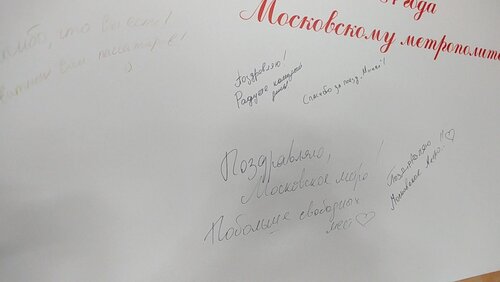 года
Московскому метрополите
Спасибо, что вместе!
Поздравляю!
Радуете каждый
день
Спасибо за поезд „Мишка"!
Поздравляю,
Московское метро!
Побольше свободных
мест♡
Поздравляю!!
Московское метро..♡